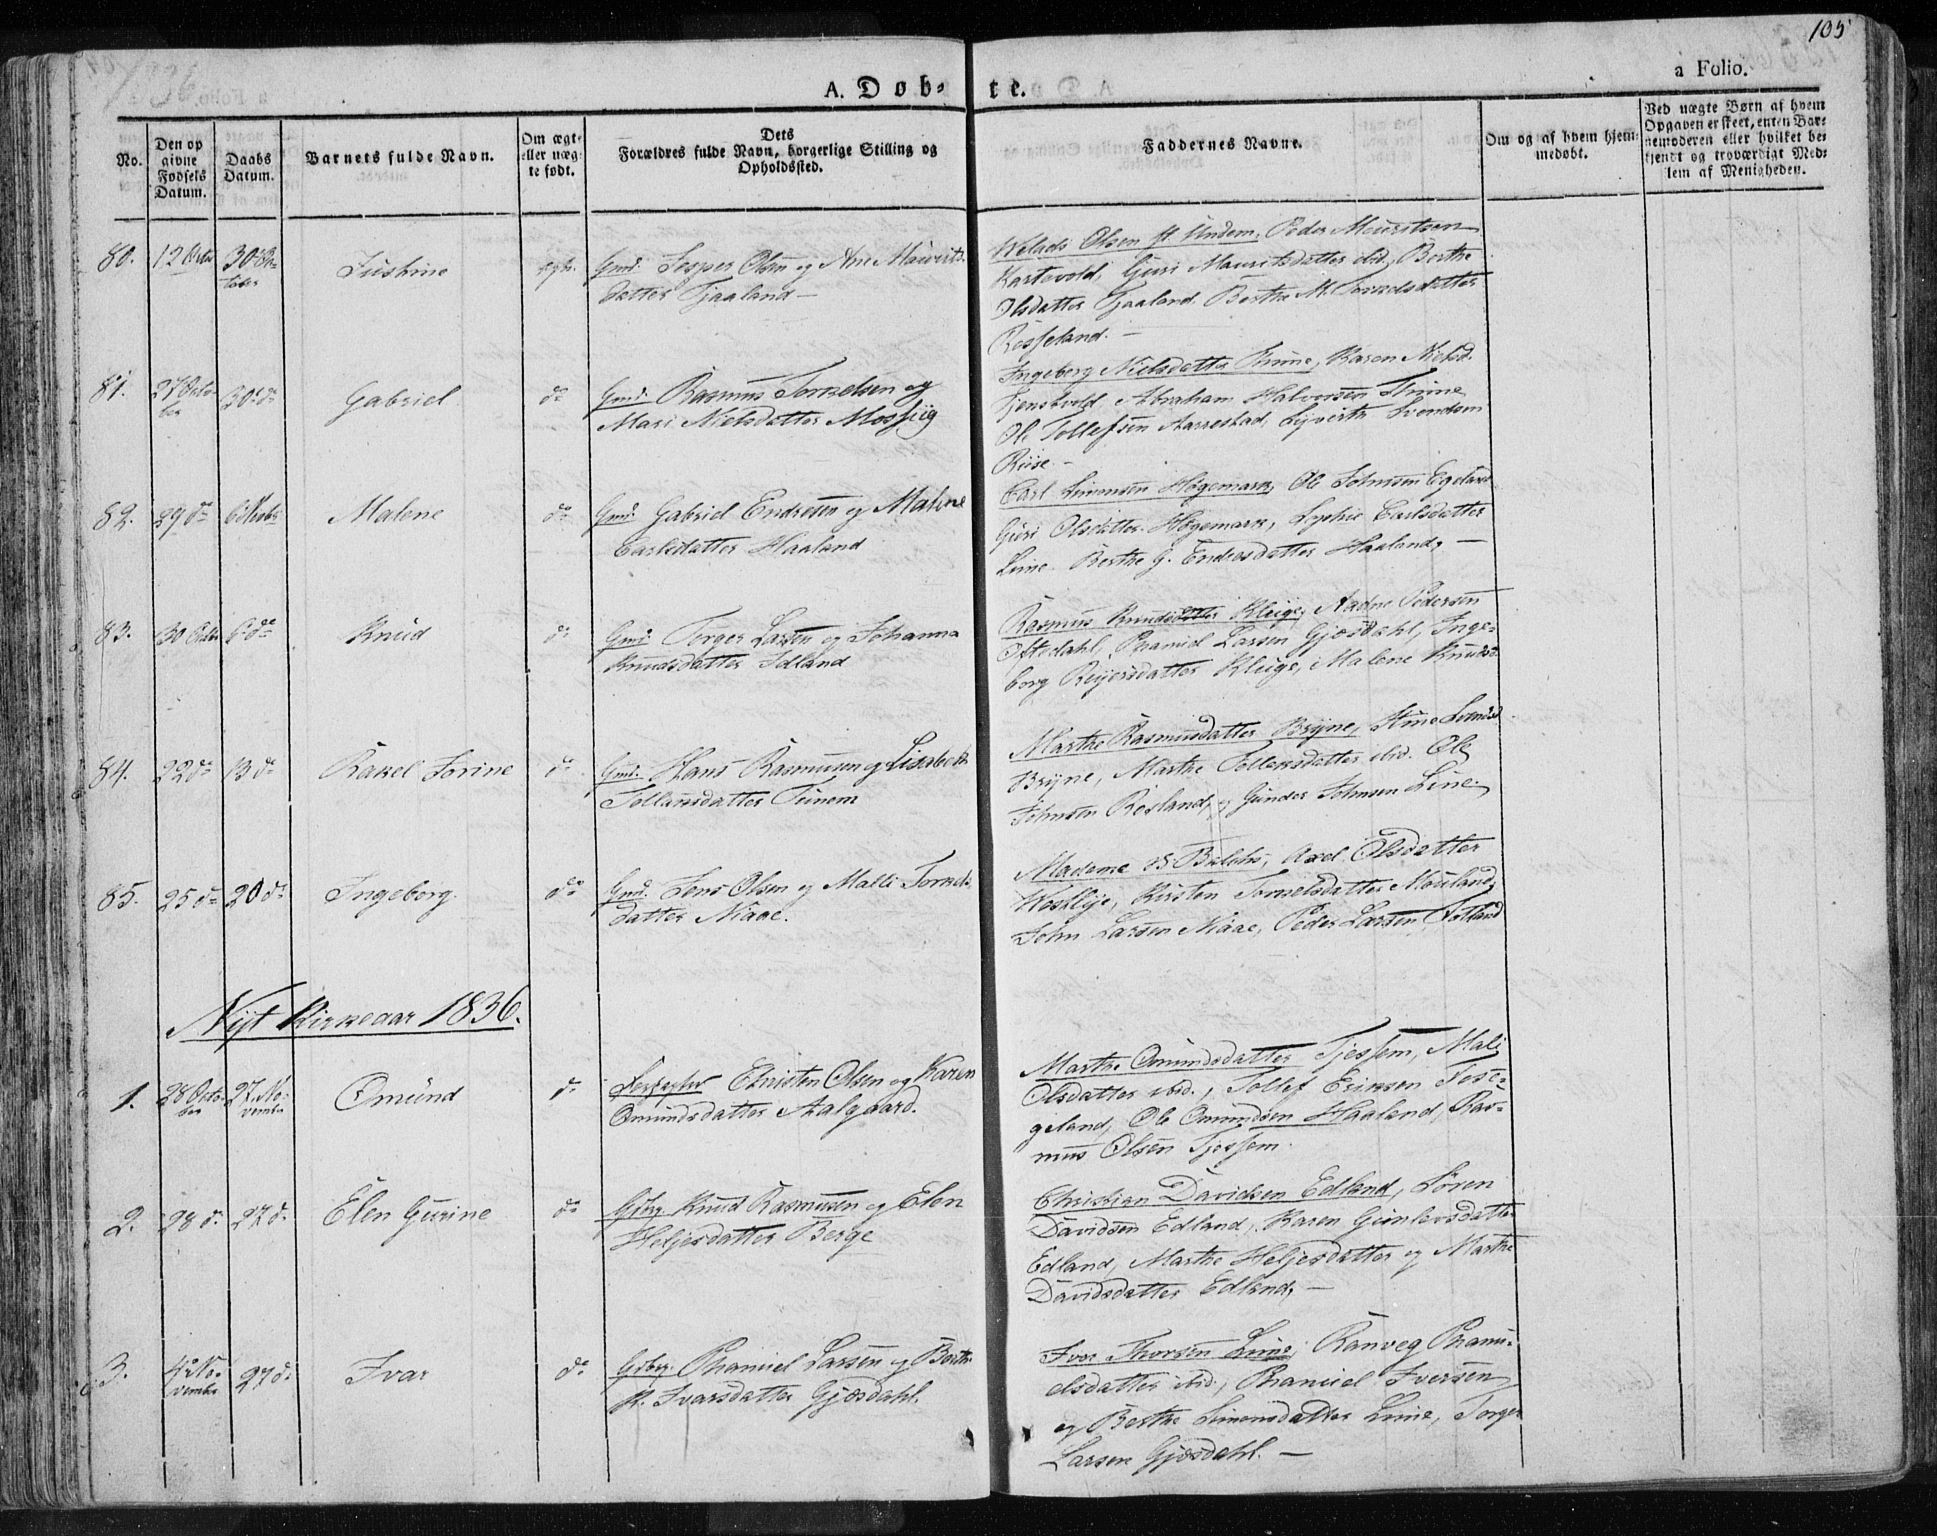 105
a Folio.
A. Døb-
te.
No.
Den op
givne
Fødsels
Datum.
Daabs
Datum.
Barnets fulde Navn.
Om ægt-
eller uæg-
te født.
Dets
Forældres fulde Navn, borgerlige Stilling og
Opholdssted.
Faddernes Navne.
Om og af hvem hjem-
medøbt.
Ved uægte Børn af hvem
Opgaven er skeet, enten Bar-
nemoderen eller hvilket be-
kjendt og troværdigt Med-
lem af Menigheden.
80.
12 Octbr
30 Oc-
tober
Justine
ægte
Gmd. Jesper Olsen og Ane Mauritz-
datter Tjaaland —
Olsen Undem, Peder Mauritsen
Kartevold, Guri Mauritsdatter ibd, Berthe
Olsdatter Tjaaland, Berthe M. Torkelsdatter
Rosseland. —
81.
27 Octo-
ber
30 do
Gabriel
do
Gmd. Rasmus Torkelsen og
Mari Nielsdatter Mossiig
Ingeborg Nielsdatter Thime, Karen Nielsd.
Abraham Halvorsen Thime
Ole Tollefsen Aarrestad, Syvert Svendsen
Riise —
82.
29 do
6 Novbr
Malene
do
Gmd. Gabriel Endresen og Malene
Carlsdatter Haaland
Carl Simonsen Høgemark, Ole Johnsen Egeland
Guri Olsdatter Høgemark, Sophie Carlsdatter
Lime Berthe G. Endresdatter Haaland, —
83.
30 Octbr
6 do
Knud
do
Gmd. Torger Larsen og Johanna
Knudsdatter Edland
Rasmus Knudsen Kleige, Aadne Pedersen
Oftedahl, Phanuel Larsen Gjæsdahl, Inge-
borg Reijersdatter Kleige, Malene Knudsd.
84.
22 do
13 do
Rakel Sorine
do
Gmd. Hans Rasmusen og Lisabeth
Tollaksdatter Tunem
Marthe Rasmusdatter Bryne, Stine Svendsd.
Bryne, Marthe Tollaksdatter ibd. Ole
Johnsen Rosland, og Gunder Johnsen Line
85.
25 do
20 do
Ingeborg
do
Gmd. Jens Olsen og Malli Torkels-
datter Niaae.
Madame B. Balchi, Axel Olsdatter
Westlye, Kirsten Torkelsdatter Mauland,
John Larsen Niaae, Peder Larsen Fotland
Nyt Kirkeaar 1836.
1.
28 Octo-
ber
27 No-
vember
Omund
do
Christen Olsen og Karen
Omundsdatter Aalgaard.
Marthe Omundsdatter Tjessem, Mali
Olsdatter ibd., Tollef Eriksen Fose-
geland, Ole Omundsen Haaland, Ras-
mus Olsen Tjessem
2.
28 do
27 do
Elen Gurine
do
Gdbrg. Knud Rasmusen og Elen
Heljesdatter Berge
Christian Davidsen Edland, Søren
Davidsen Edland, Karen Gunlevsdatter
Edland, Marthe Heljesdatter og Marthe
Davidsdatter Edland, —
3.
4 No-
vember
27 do
Ivar
do
Gdbrg. Phanuel Larsen og Berthe
K. Ivarsdatter Gjæsdahl.
Ivar Thorsen Lime, Ranveg Phanu-
elsdatter ibd., Phanuel Iversen
og Berthe Simonsdatter Lime, Torger
Larsen Gjæsdahl. —